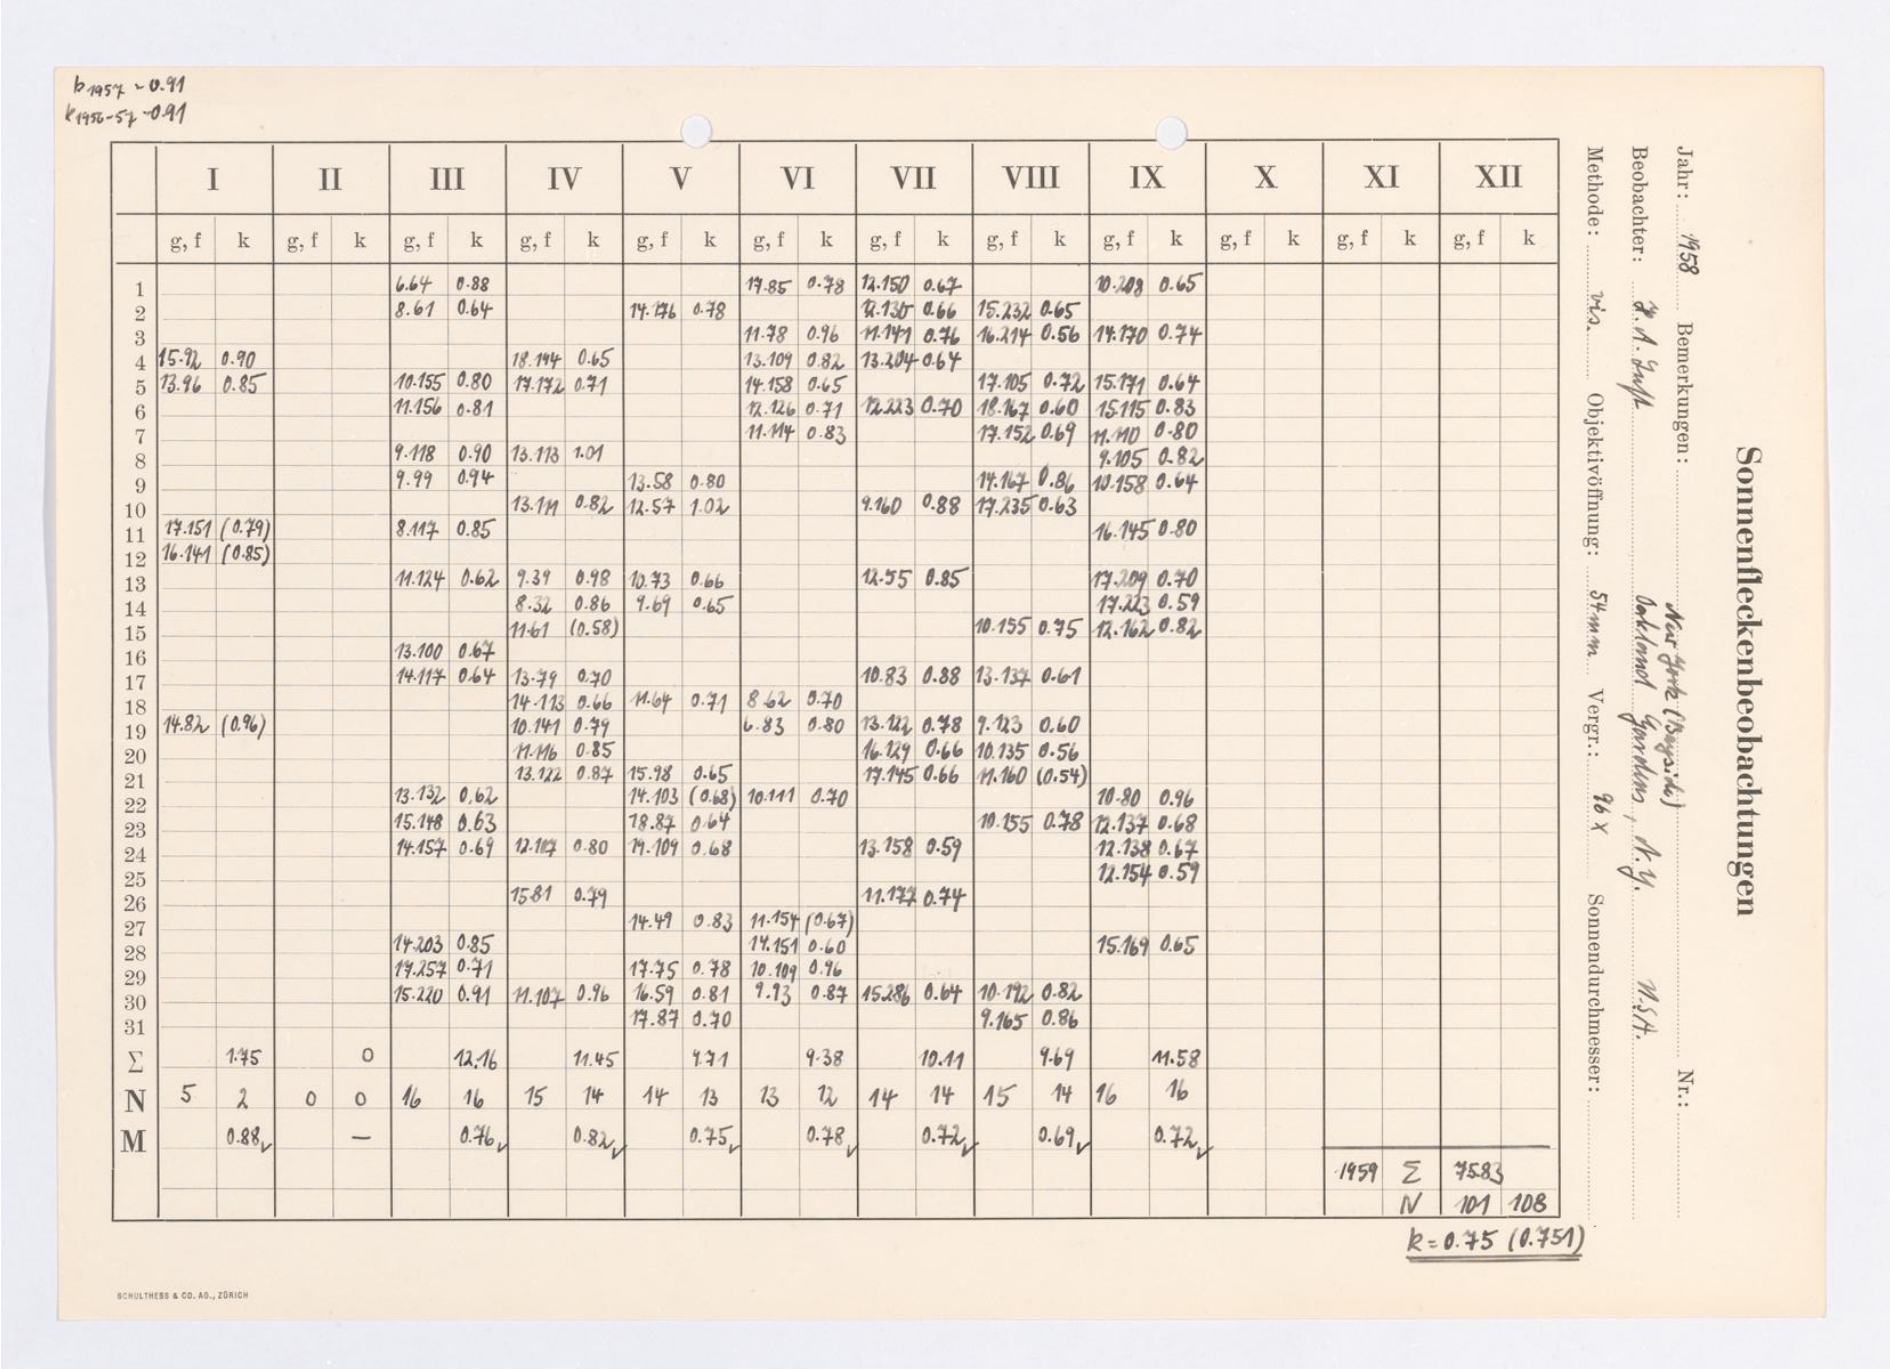 k1957 = 0.91
k1956-57 = 0.91
Sonnenfleckenbeobachtungen
Jahr: 1958 Bemerkungen: New York (Bayside) Nr.:
Beobachter: Oakland Gardens, N.Y. U.S.A.
Methode: vis. Objektivöffnung: 54mm Vergr.: 96x Sonnendurchmesser:
I II III IV V VI VII VIII IX X XI XII
g, f k g, f k g, f k g, f k g, f k g, f k g, f k g, f k g, f k g, f k g, f k g, f k
1 6.64 0.88 17.85 0.78 12.150 0.67 10.208 0.65
2 8.61 0.64 14.176 0.78 12.135 0.66 15.232 0.65
3 11.78 0.96 11.141 0.76 16.214 0.56 14.170 0.74
4 15.92 0.90 18.194 0.65 13.109 0.82 13.204 0.64
5 13.96 0.85 10.155 0.80 17.172 0.71 14.158 0.65 17.105 0.72 15.171 0.64
6 11.156 0.81 12.126 0.71 12.223 0.70 18.167 0.60 15.115 0.83
7 11.114 0.83 17.152 0.69 11.110 0.80
8 9.118 0.90 13.113 1.01 9.105 0.82
9 9.99 0.94 13.58 0.80 14.167 0.86 10.158 0.64
10 13.111 0.82 12.57 1.02 9.160 0.88 17.235 0.63
11 17.151 (0.79) 8.117 0.85 16.145 0.80
12 16.141 (0.85)
13 11.124 0.62 9.39 0.98 10.73 0.66 12.55 0.85 17.209 0.70
14 8.32 0.86 9.69 0.65 17.223 0.59
15 11.61 (0.58) 10.155 0.75 12.162 0.82
16 13.100 0.67
17 14.117 0.64 13.79 0.70 10.83 0.88 13.137 0.61
18 14.113 0.66 11.64 0.71 8.62 0.70
19 14.82 (0.96) 10.141 0.79 6.83 0.80 13.122 0.78 9.123 0.60
20 11.116 0.85 16.129 0.66 10.135 0.56
21 13.122 0.87 15.98 0.65 17.145 0.66 11.160 (0.54)
22 13.132 0.62 14.103 (0.68) 10.111 0.70 10.80 0.96
23 15.148 0.63 18.87 0.64 10.155 0.78 12.137 0.68
24 14.157 0.69 12.107 0.80 19.109 0.68 13.158 0.59 12.138 0.67
25 12.154 0.59
26 15.81 0.79 11.177 0.74
27 14.49 0.83 11.154 (0.67)
28 14.203 0.85 14.151 0.60 15.169 0.65
29 17.257 0.71 17.75 0.78 10.109 0.96
30 15.220 0.91 11.107 0.96 16.59 0.81 9.93 0.87 15.286 0.64 10.192 0.82
31 17.87 0.70 9.165 0.86
Σ 1.75 0 12.16 11.45 9.71 9.38 10.11 9.69 11.58
N 5 2 0 0 16 16 15 14 14 13 13 12 14 14 15 14 16 16
M 0.88 — 0.76 0.82 0.75 0.78 0.72 0.69 0.72
1959 Σ 75.83
N 101 108
k = 0.75 (0.751)
SCHULTHESS & CO. AG., ZÜRICH